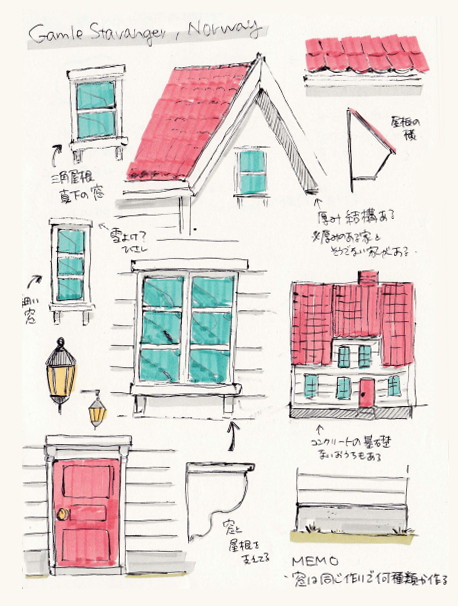 Gamle Stavanger, Norway
屋根の
様
三角屋根
真下の窓
雪よけ?
ひさし
厚み 結構ある
※厚みのある家と
そうでない家がある.
細い
窓
コンクリートの基礎
ないおうちもある
窓と
屋根を
支えてる
MEMO
・窓は同じ作りで何種類か作る